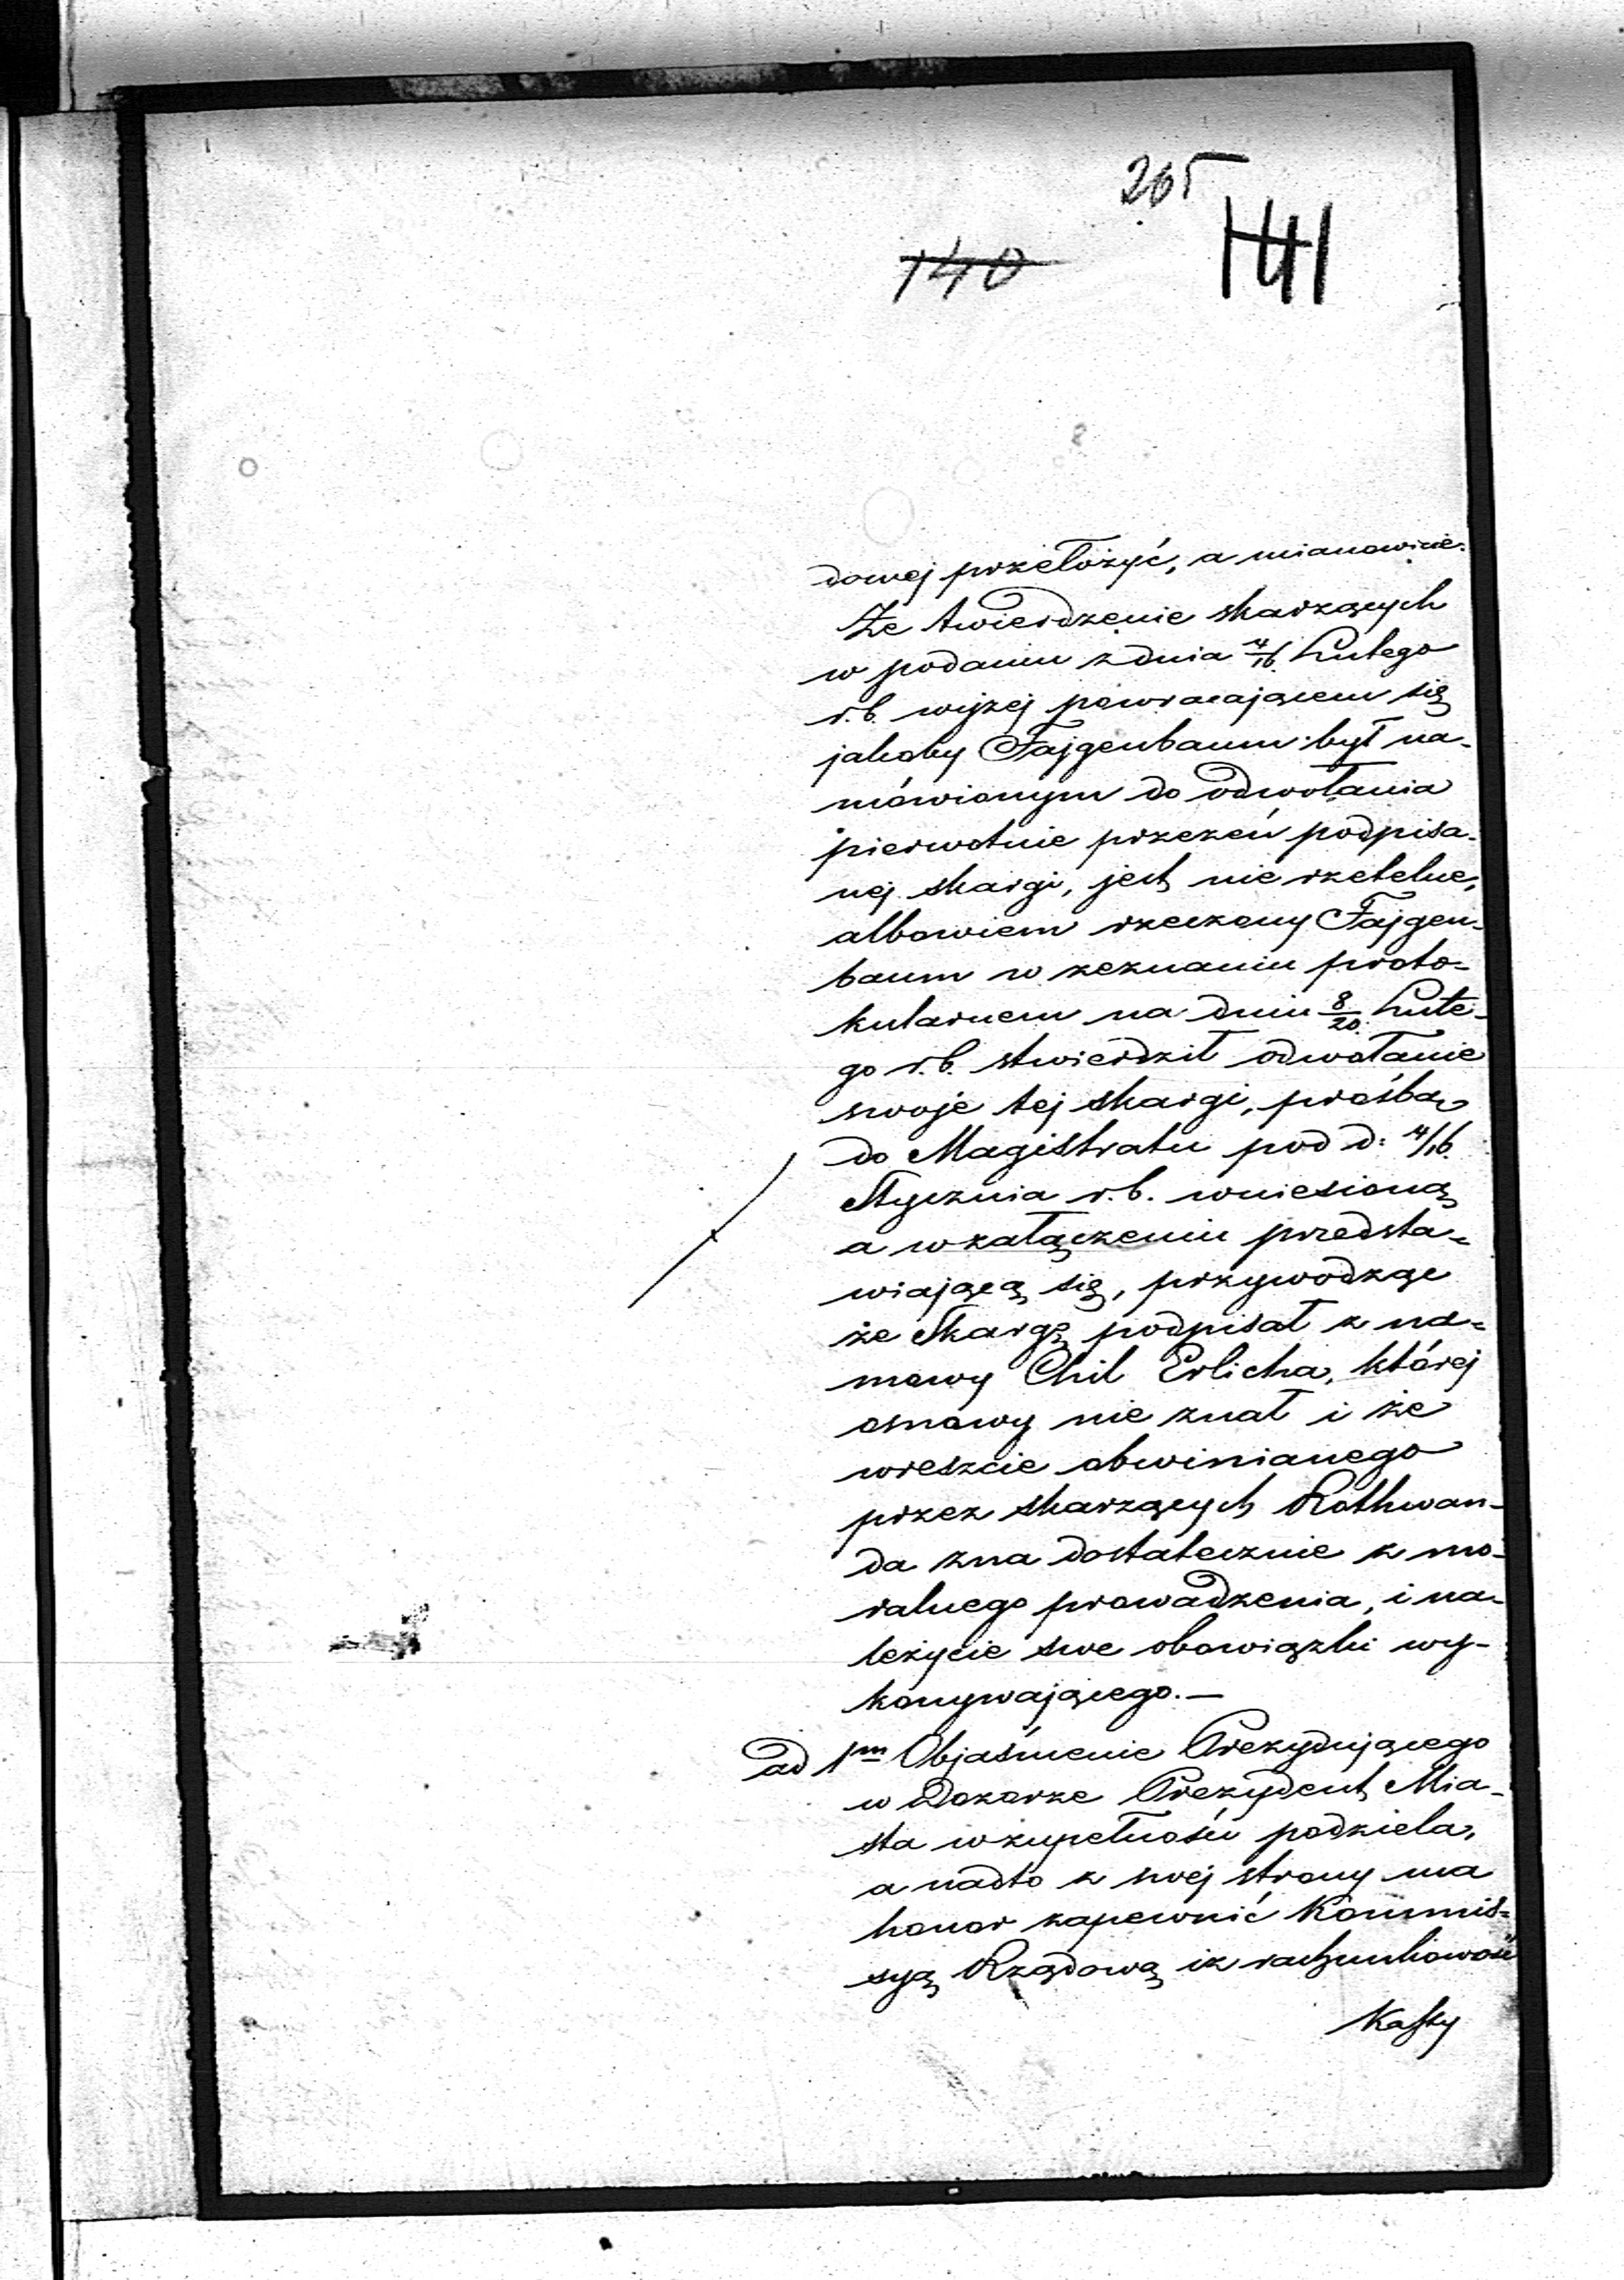 265
140
141
dowej przełożyć, a mianowicie:
Że twierdzenie skarżących
w podaniu z dnia 4/16 Lutego
r.b. wyżej powracającem się
jakoby Fajgenbaum był na-
mówionym do odwołania
pierwotnie przezeń podpisa-
nej skargi, jest nie rzetelne,
albowiem rzeczony Fajgen-
baum w zeznaniu proto-
kularnem na dniu 8/20 Lute-
go r.b. stwierdził odwołanie
swoje tej skargi, prośbą
do Magistratu pod d: 4/16
Stycznia r.b. wniesioną
a w załączeniu przedsta-
wiającą się, przywodząc
że Skargę podpisał z na-
mowy Chil Erlicha, której
osnowy nie znał i że
wreszcie obwinianego
przez skarżących Rothwan-
da zna dostatecznie z mo-
ralnego prowadzenia, i na-
leżycie swe obowiązki wy-
konywającego.—
ad 1m Objaśnienie Prezydującego
w Dozorze Prezydent Mia-
sta w zupełności podziela,
a nadto z swej strony ma
honor zapewnić Kommis-
syą Rządową iż rachunkowość
Kassy